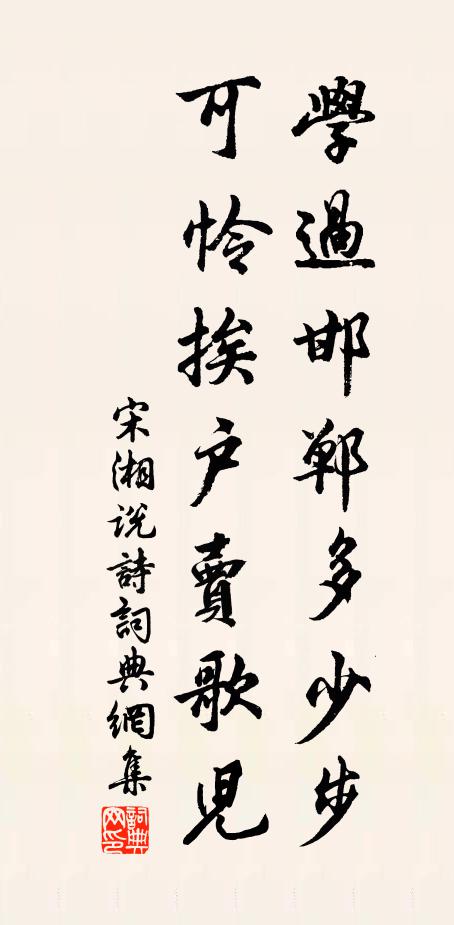 學過邯鄲多少步
可憐挨戶賣歌兒
宋湘說詩詞典網集
詞典網印